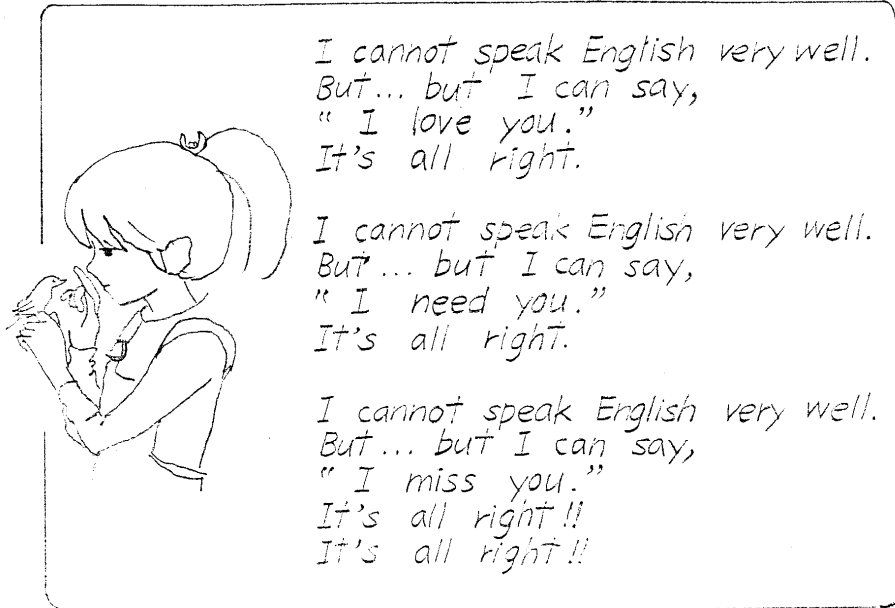 I cannot speak English very well.
But... but I can say,
" I love you."
It's all right.
I cannot speak English very well.
But... but I can say,
" I need you."
It's all right.
I cannot speak English very well.
But... but I can say,
" I miss you."
It's all right!!
It's all right!!